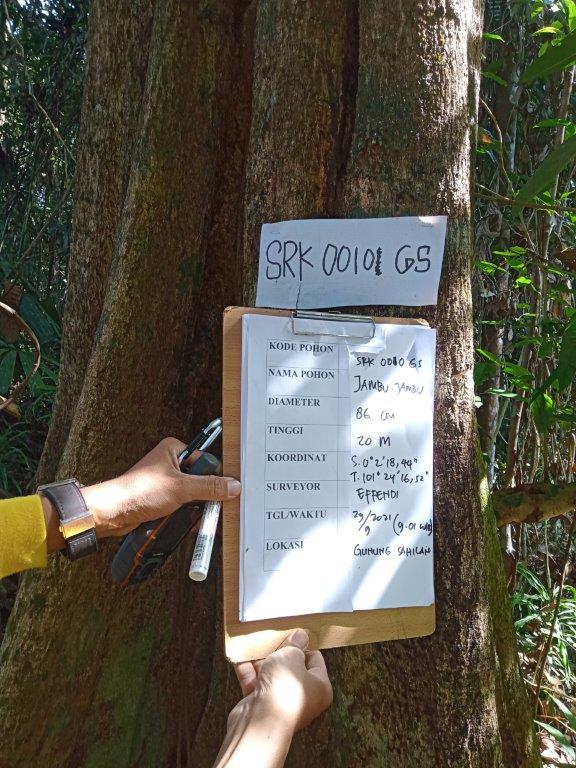 SRK 00101 GS
KODE POHON SRK 0010 GS
NAMA POHON JAMBU-JAMBU
DIAMETER 86 cm
TINGGI 20 M
KOORDINAT S. 0° 2' 18,44"
T. 101° 24' 16,52"
SURVEYOR EFFENDI
TGL/WAKTU 29/9/2021 (9.01 WIB)
LOKASI GUNUNG SAHILAN